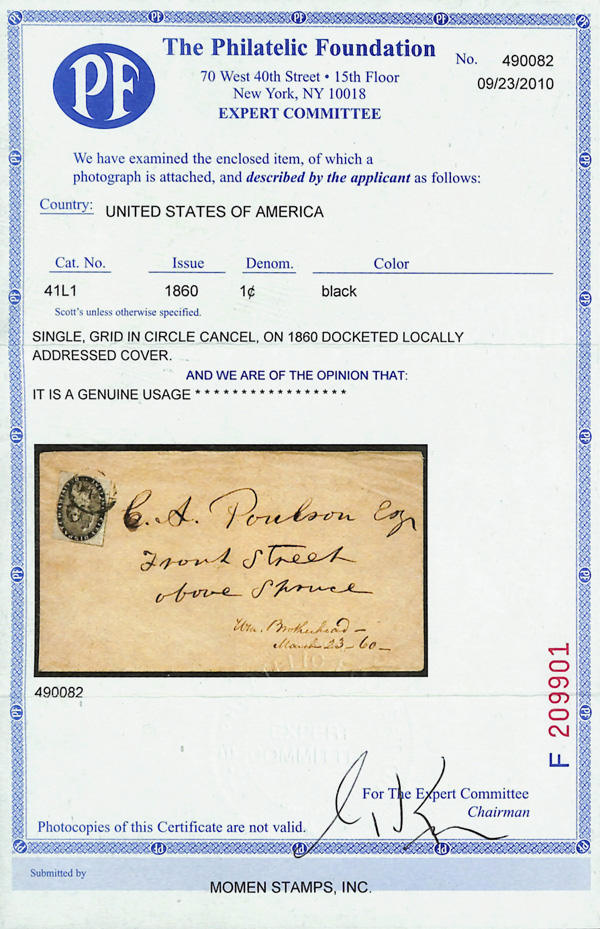 PF
The Philatelic Foundation
70 West 40th Street • 15th Floor
New York, NY 10018
EXPERT COMMITTEE
No. 490082
09/23/2010
We have examined the enclosed item, of which a
photograph is attached, and described by the applicant as follows:
Country: UNITED STATES OF AMERICA
Cat. No. Issue Denom. Color
41L1 1860 1¢ black
Scott's unless otherwise specified.
SINGLE, GRID IN CIRCLE CANCEL, ON 1860 DOCKETED LOCALLY
ADDRESSED COVER.
AND WE ARE OF THE OPINION THAT:
IT IS A GENUINE USAGE * * * * * * * * * * * * * * * * *
C. A. Poulson Esq
Front Street
above Spruce
Wm. Brotherhead –
March 23 – 60 –
490082
F 209901
EXPERT
COMMITTEE
For The Expert Committee
Chairman
Photocopies of this Certificate are not valid.
Submitted by
MOMEN STAMPS, INC.